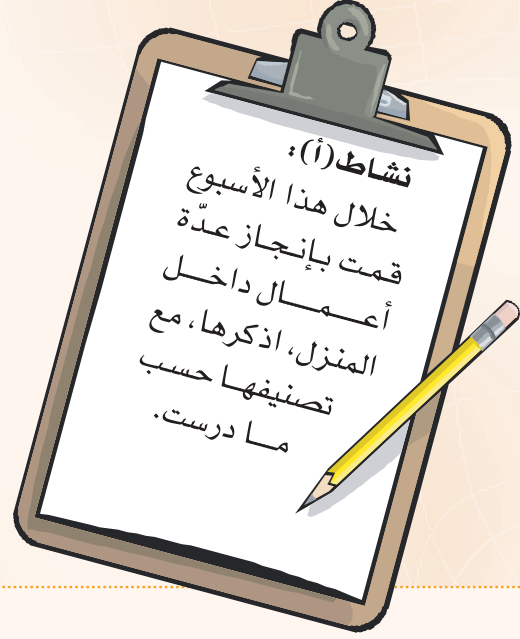 نشاط(أ):
خلال هذا الأسبوع
قمت بإنجاز عدّة
أعـــمـــال داخــل
المنزل، اذكرها، مع
تصنيفهـا حسب
مـا درست.